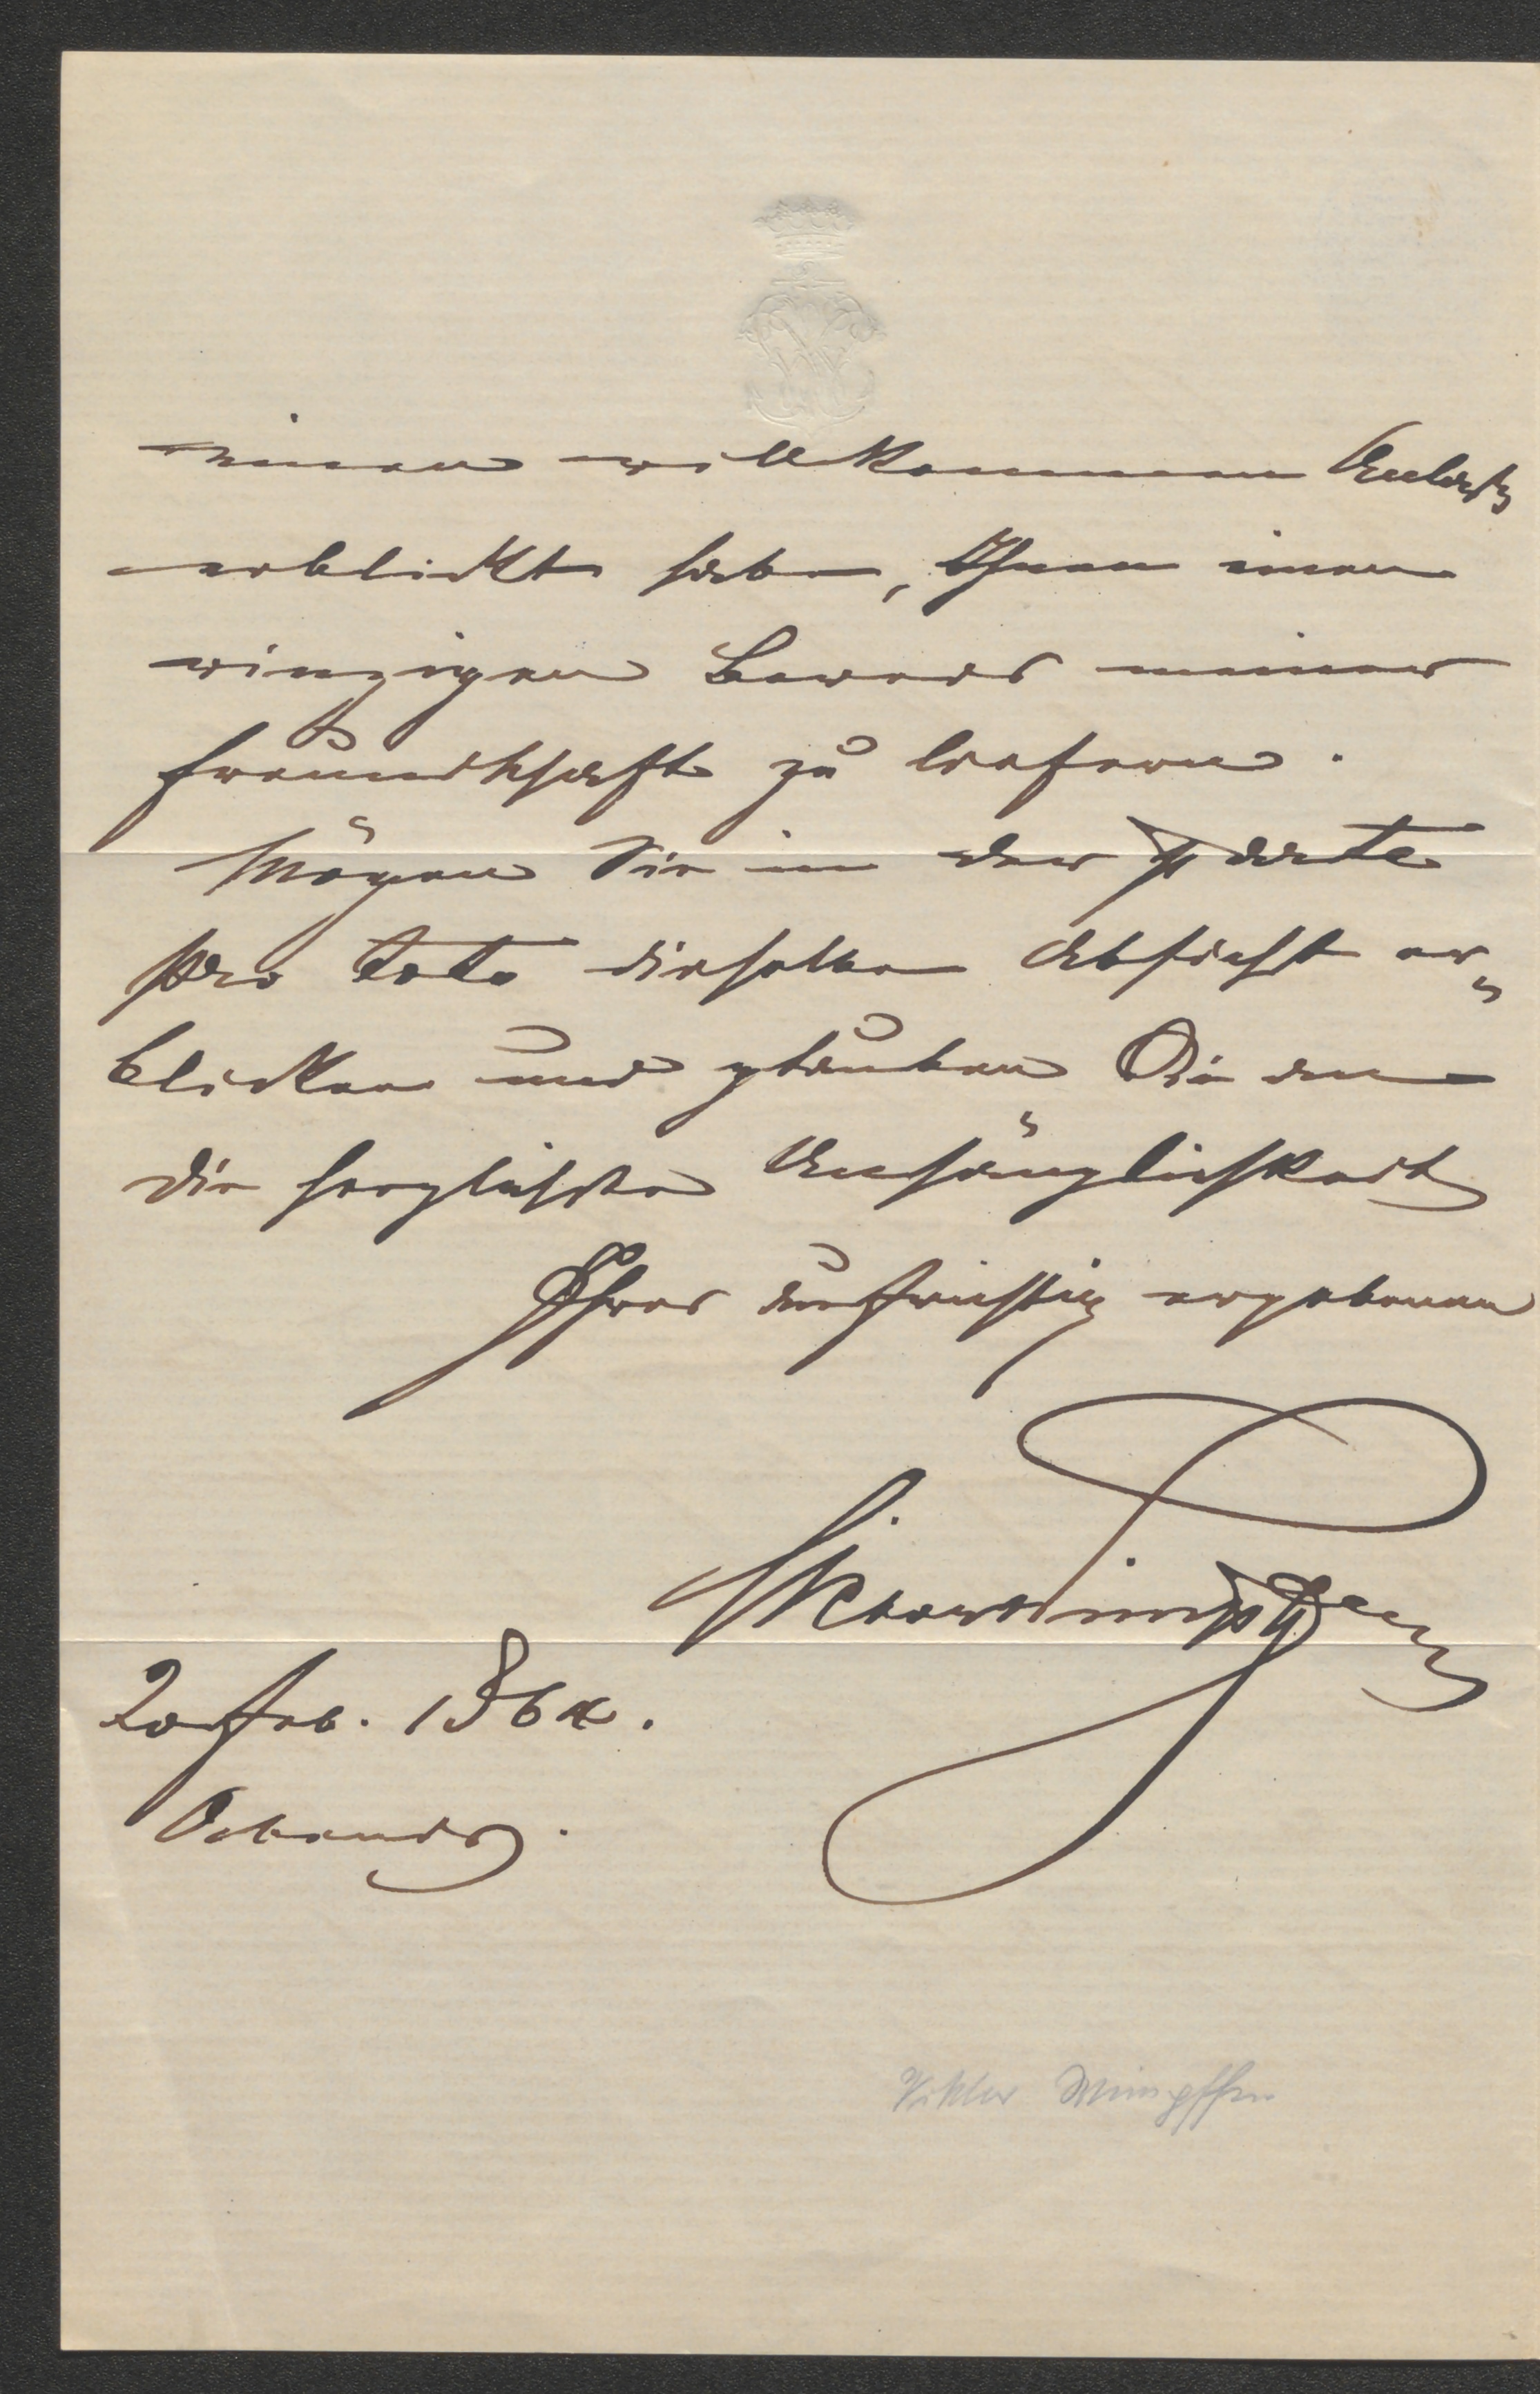 einen willkommenen Anlaß
erblickt habe, Ihnen einen
winzigen Beweis meiner
Freundschaft zu liefern.
Mögen Sie in der parte
pro toto dieselbe Absicht er=
blicken und glauben Sie an
die herzlichste Anhänglichkeit
Ihres aufrichtig ergebenen
Victor Wimpffen
20 Feb. 1864.
Abends.
Viktor Wimpffen